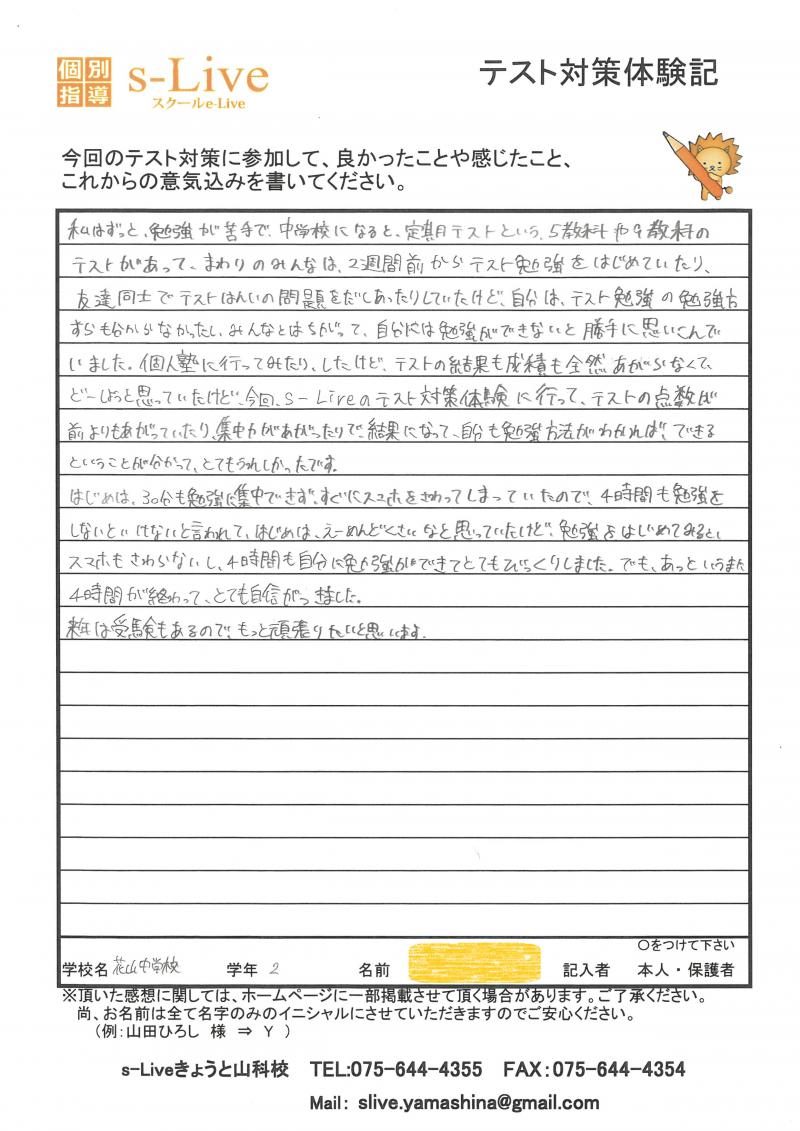 個別
指導
s-Live
スクールe-Live
テスト対策体験記
今回のテスト対策に参加して、良かったことや感じたこと、
これからの意気込みを書いてください。
私はずっと、勉強が苦手で、中学校になると、定期テストという、5教科や9教科の
テストがあって、まわりのみんなは、2週間前からテスト勉強をはじめていたり、
友達同士でテストはんいの問題をだしあったりしていたけど、自分は、テスト勉強の勉強方
すらも分からなかったし、みんなとはちがって、自分には勉強ができないと勝手に思いこんで
いました。個人塾に行ってみたり、したけど、テストの結果も成績も全然あがらなくて、
どーしよっと思っていたけど、今回、s-Liveのテスト対策体験に行って、テストの点数が
前よりもあがっていたり、集中力があがったりで、結果になって、自分も勉強方法がわかれば、できる
ということが分かって、とてもうれしかったです。
はじめは、30分も勉強に集中できず、すぐにスマホをさわってしまっていたので、4時間も勉強を
しないといけないと言われて、はじめは、えーめんどくさいなと思っていたけど、勉強をはじめてみると、
スマホもさわらないし、4時間も自分に勉強ができてとてもびっくりしました。でも、あっというまに
4時間が終わって、とても自信がつきました。
来年は受験もあるので、もっと頑張りたいと思います。
〇をつけて下さい
学校名 花山中学校 学年 2 名前 記入者 本人・保護者
※頂いた感想に関しては、ホームページに一部掲載させて頂く場合があります。ご了承ください。
尚、お名前は全て名字のみのイニシャルにさせていただきますのでご安心ください。
(例:山田ひろし 様 ⇒ Y )
s-Liveきょうと山科校 TEL:075-644-4355 FAX:075-644-4354
Mail: slive.yamashina@gmail.com